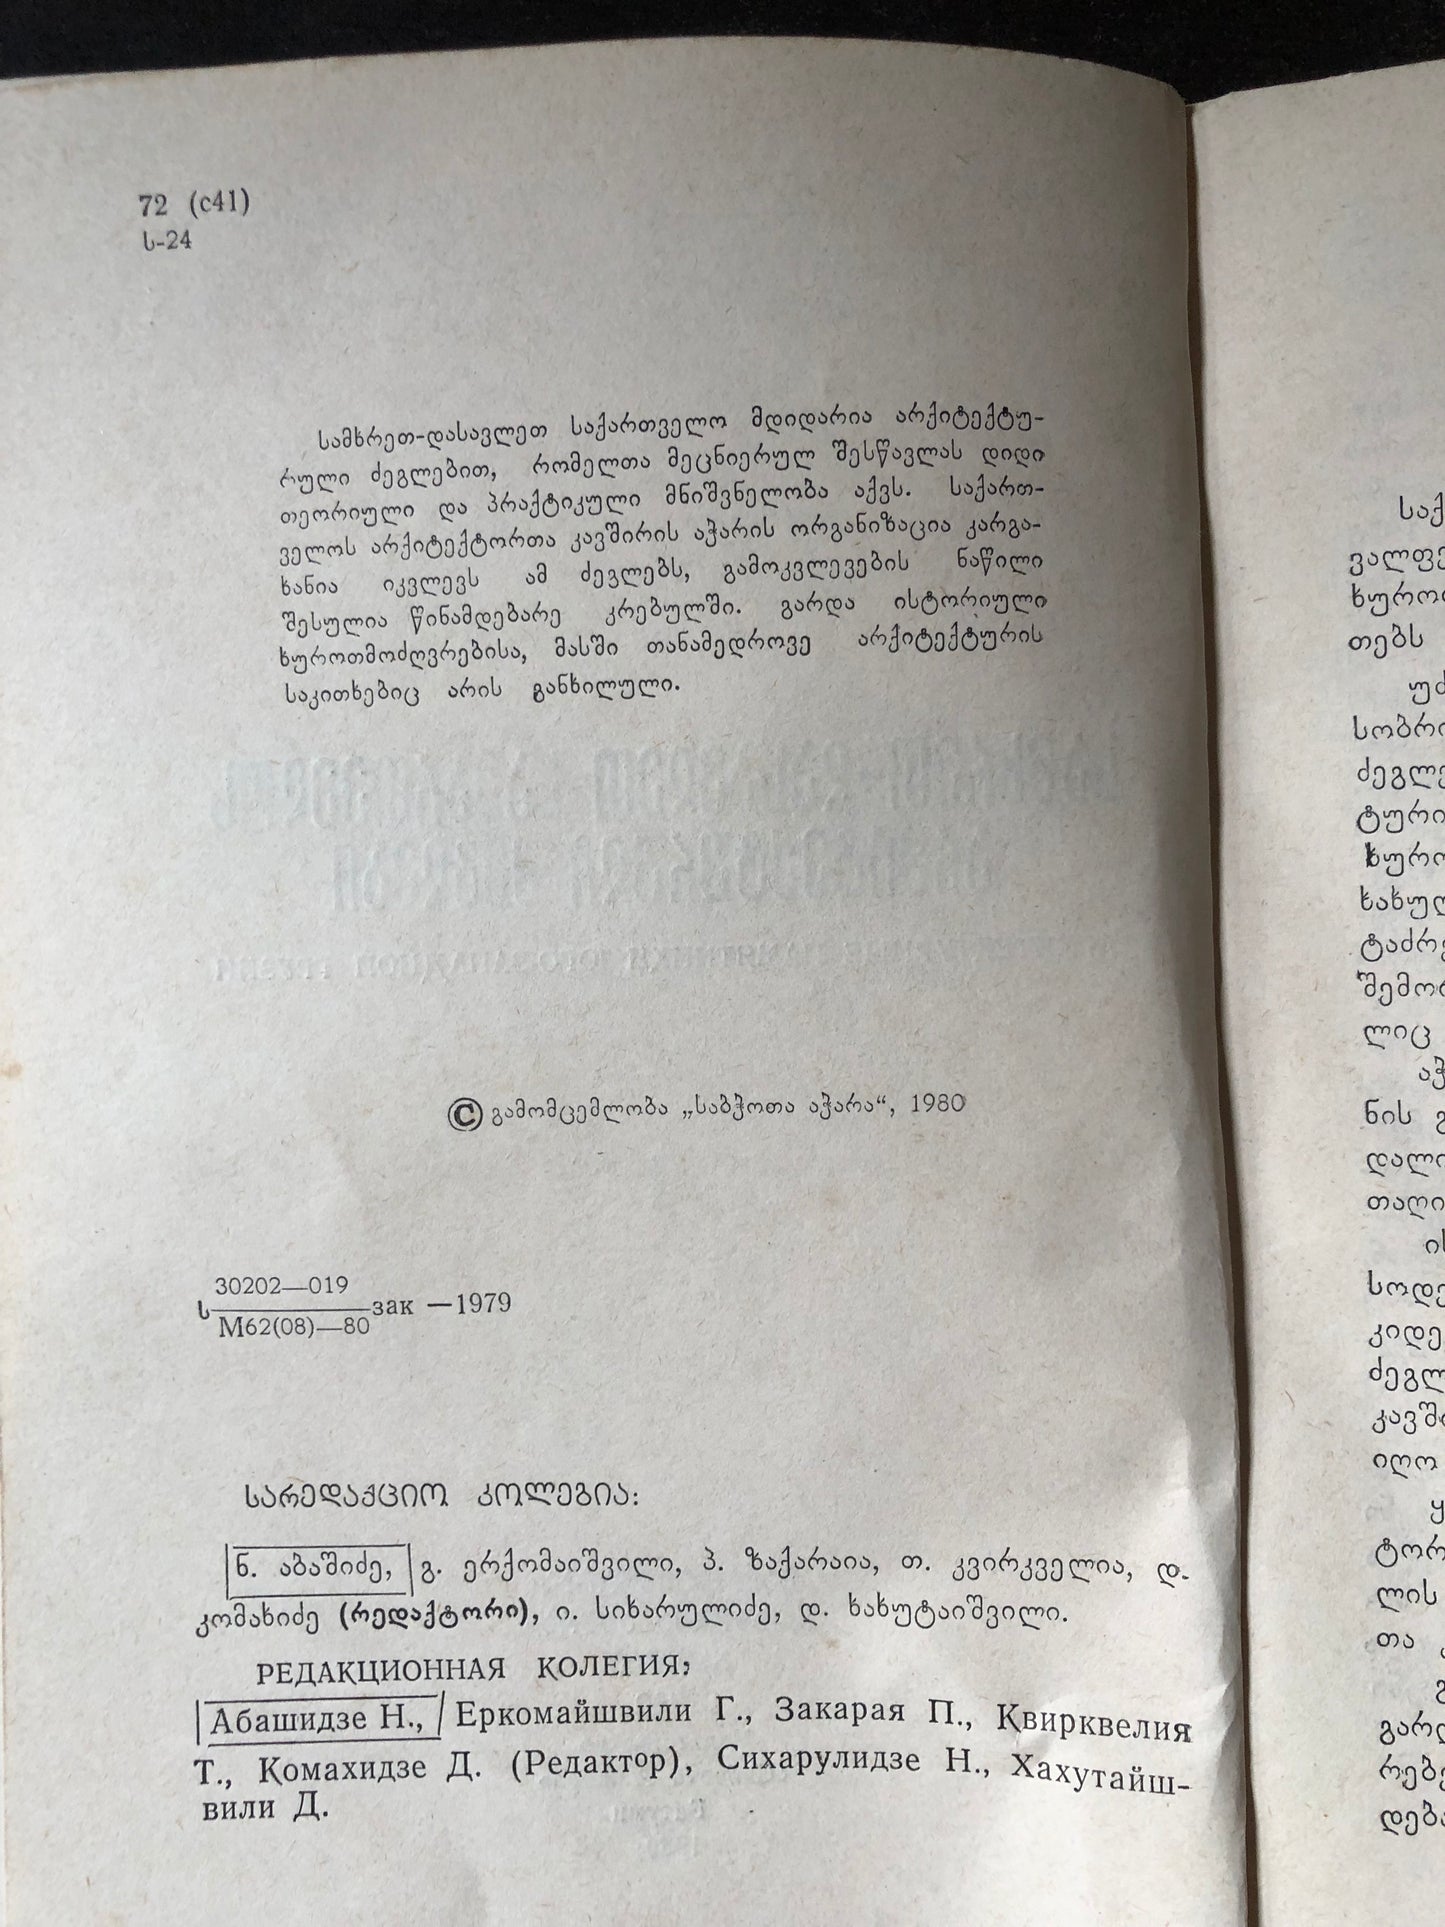 72 (с41)
ს-24
სამხრეთ-დასავლეთ საქართველო მდიდარია არქიტექტუ-
რული ძეგლებით, რომელთა მეცნიერულ შესწავლას დიდი
თეორიული და პრაქტიკული მნიშვნელობა აქვს. საქართ-
ველოს არქიტექტორთა კავშირის აჭარის ორგანიზაცია კარგა-
ხანია იკვლევს ამ ძეგლებს, გამოკვლევების ნაწილი
შესულია წინამდებარე კრებულში. გარდა ისტორიული
ხუროთმოძღვრებისა, მასში თანამედროვე არქიტექტურის
საკითხებიც არის განხილული.
© გამომცემლობა „საბჭოთა აჭარა“, 1980
30202—019
ს зак —1979
М62(08)—80
სარედაქციო კოლეგია:
ნ. აბაშიძე, გ. ერქომაიშვილი, პ. ზაქარაია, თ. კვირკველია, დ.
კომახიძე (რედაქტორი), ი. სიხარულიძე, დ. ხახუტაიშვილი.
РЕДАКЦИОННАЯ КОЛЕГИЯ;
Абашидзе Н., Еркомайшвили Г., Закарая П., Квирквелия
Т., Комахидзе Д. (Редактор), Сихарулидзе Н., Хахутайш-
вили Д.
საქ
ვალფე
თებს
უძ
ძეგლე
ტური
ტაძრე
ლიც
აჭ
ნის გ
დალი
თაღი
ის
სოდე
კიდე
ძეგლ
კავში
იღო
ყ
ტორ
ლის
თა
გ
გარდ
რებე
დება